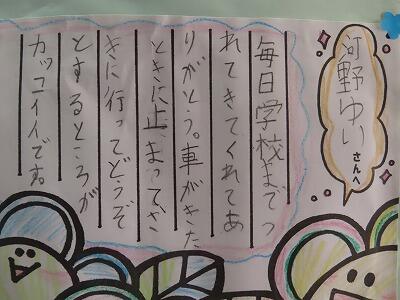 河野ゆいさんへ
毎日学校までつ
れてきてくれてあ
りがとう。車がきた
ときに止まってさ
きに行ってどうぞ
とするところが
カッコイイです。